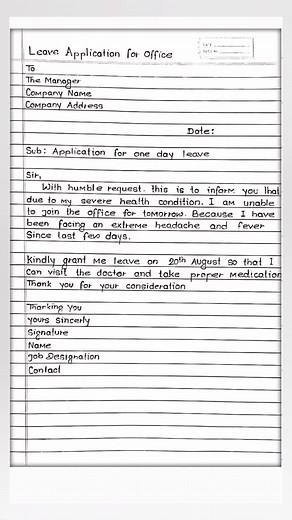 Leave Application for Office
To
The Manager
Company Name
Company Address
Date:
Sub: Application for one day leave
Sir,
With humble request. this is to inform you that
due to my severe health condition. I am unable
to join the office for tomorrow. Because I have
been facing an extreme headache and fever
Since last few days.
Kindly grant Me leave on 20th August so that I
Can visit the doctor and take proper medication
Thank you for your consideration
Thanking you
yours Sincerly
Signature
Name
Job Designation
Contact